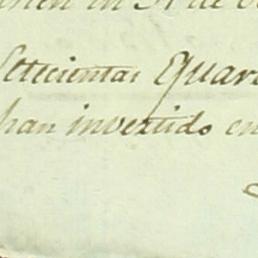 en 31 de
Settecientas Quare
han invertido en